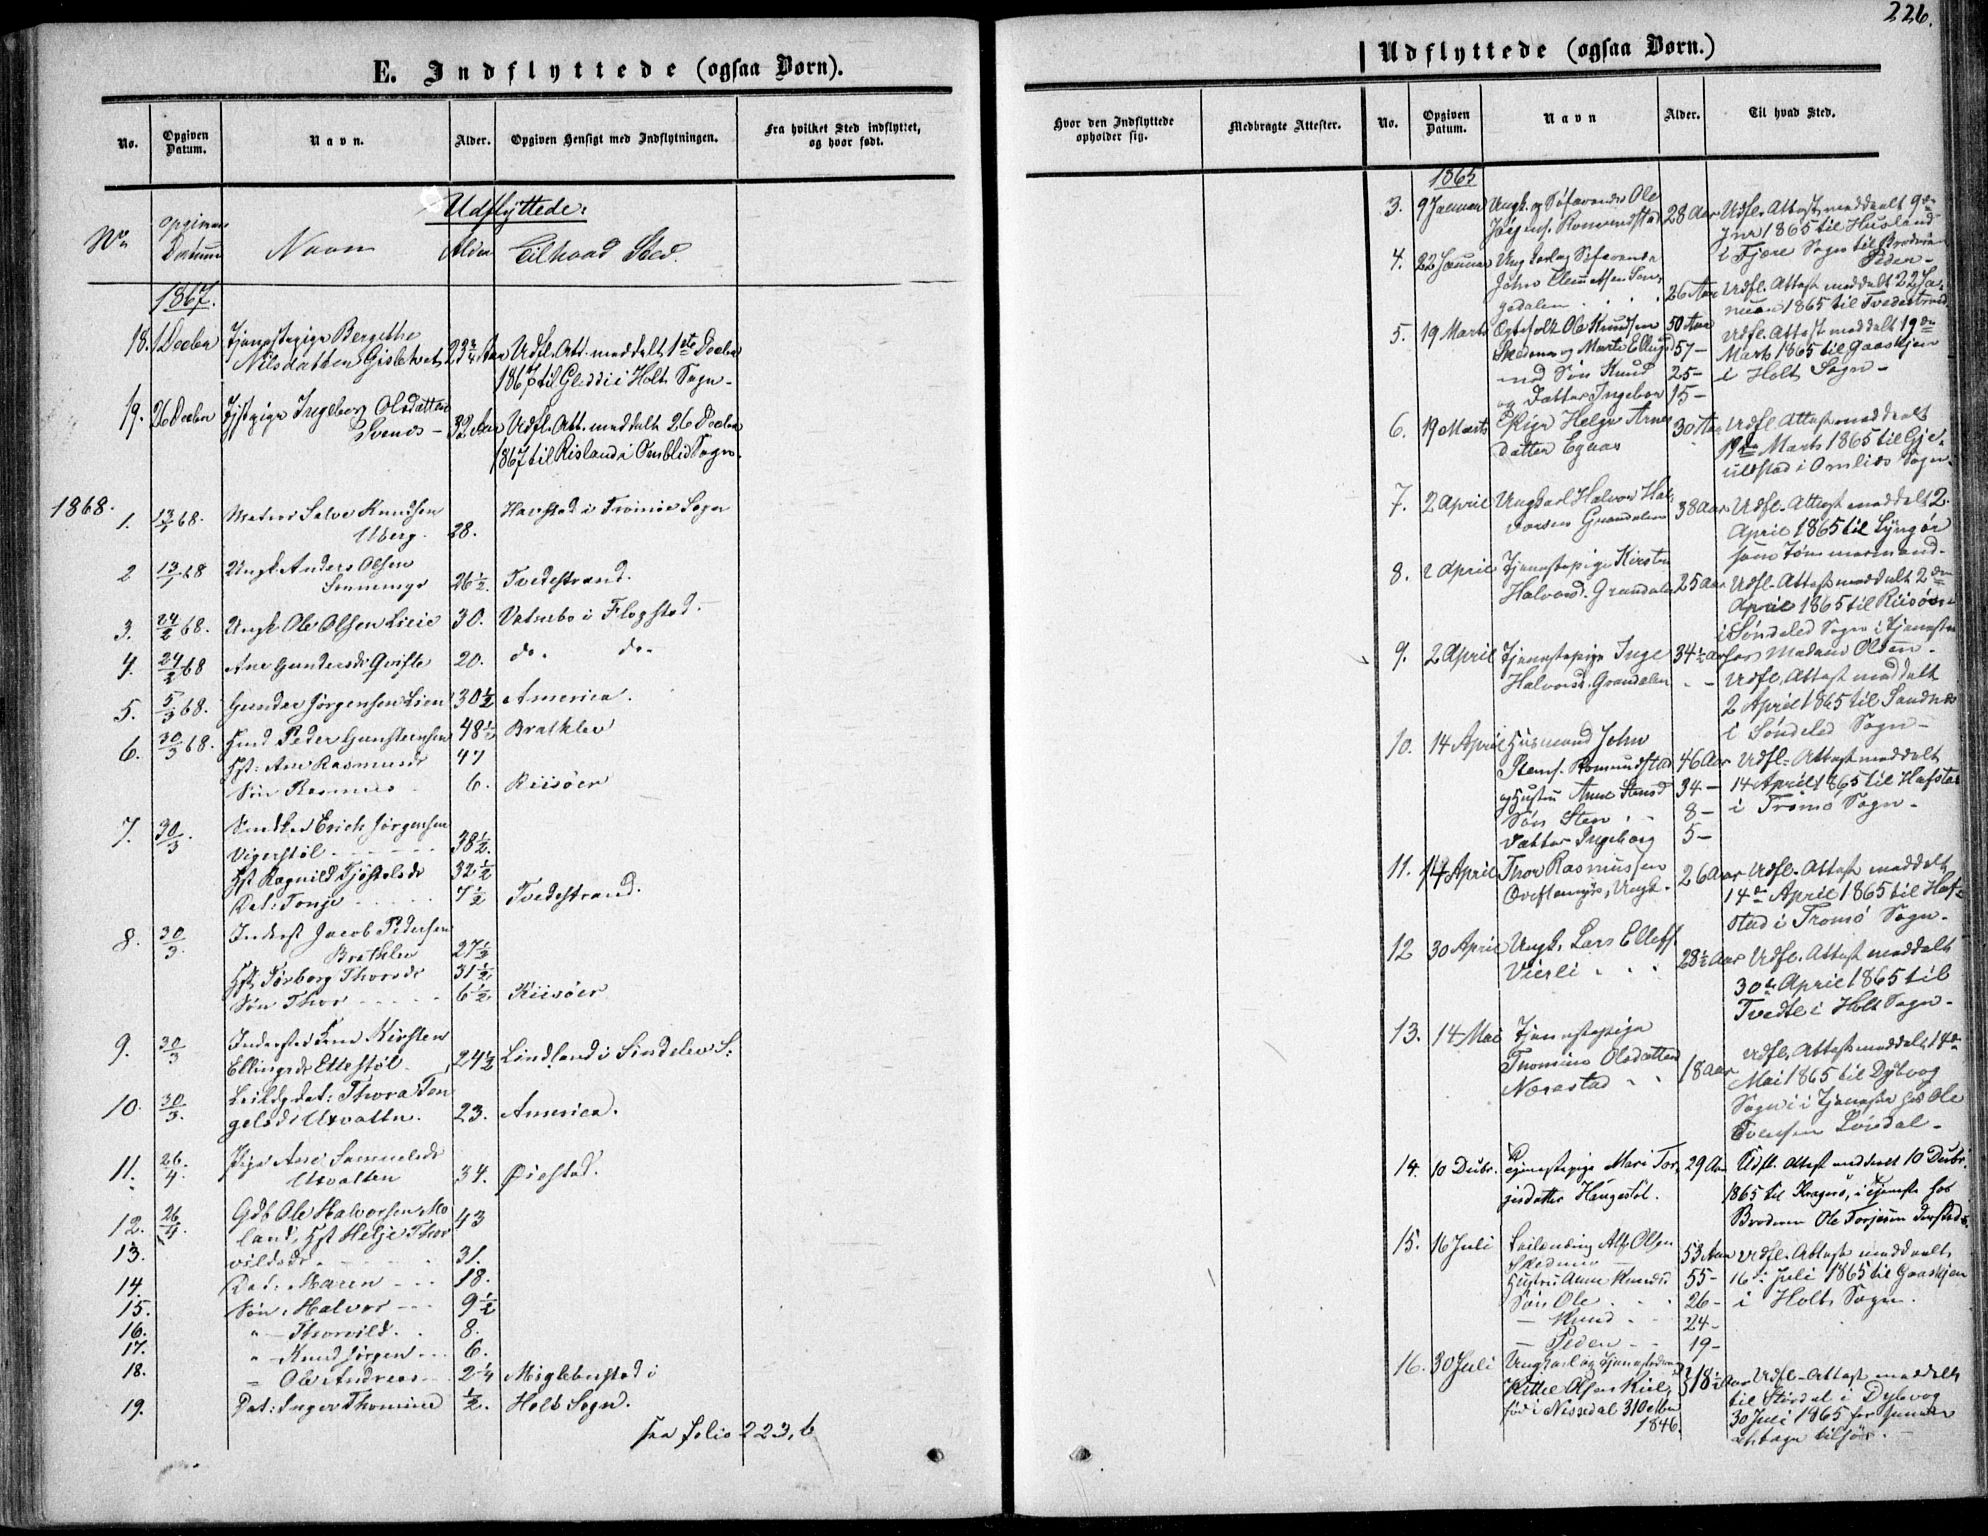 E. Indflyttede (ogsaa Børn).
No. Opgiven Datum. Navn. Alder. Opgiven Hensigt med Indflytningen. Fra hvilket Sted indflyttet, og hvor født.
Udflyttede:
No Opgiven Datum Navn Alder Til hvad Sted.
1867.
18. 1 Decbr Tjenestepige Bergethe
Nilsdatter Gislehet 23 3/4 Aar Udfl. Att. meddelt 1ste Decbr
1867 til Gleddi i Holt Sogn
19. 26 Decbr Tjstpige Ingeborg Olsdatter
Svends 32 Aar Udfl. Att. meddelt 26 Decbr
1867 til Risland i Omblid Sogn.
1868.
1. 13/1 68. Matros Salve Knudsen
Uberg. 28. Havstad i Tromøe Sogn
2 13/1 68 Ungk. Anders Olsen
26 1/2 Tvedestrand.
3. 24/2 68. Ungk Ole Olsen Lieie 30. Vatnebo i Flogstad.
4. 24/2 68 Ane Gundersd: 20. do. do.
5. 5/3 68. Gunder Jørgensen Lien 30 1/2 America.
6. 30/3 68. Husmd Peder Gunsteinsen 48 1/2 Brathlev
Hst: Ane Rasmusd: 47
Søn Rasmus 6. Riisøer
7. 30/3 Erich Jørgensen
Vigerstøl 38 1/2.
Hst Ragnild Tjøstelsdr 32 1/2
Dat: Tonje 7 1/2 Tvedestrand.
8. 30/3. Inderst Jacob Pedersen
Brathlev 27 1/2
Hst Torborg Thorsdr 31 1/2
Søn Thor 6 1/2 Riisøer
9. 30/3 Kirsten
Ellingsdr Ettestøl 24 1/2 Lindland i Sindelev S:
10. 30/3. Dat: Thora Ten
gelsdr Uxvatten. 23. America.
11. 26/4. Pige Ane Samuelsdr
Uxvatten 34. Øiestad.
12. 26/4 Gdb Ole Halvorsen Mo
land, Hst Helje Thor 43
13. vildsdr 31.
14. Dat: Maren 18.
15. Søn: Halvor 9 1/2
16. " Thorvild. 8.
17. " Knud Jørgen 6.
18. " Ole Andreas 2 1/4 Miglebustad i
19. Dat: Inger Thomine 1/2. Holt Sogn.
Fra folio 223, b
226.
Udflyttede (ogsaa Børn.)
Hvor den Indflyttede opholder sig. Medbragte Attester. No. Opgiven Datum. Navn Alder. Til hvad Sted.
1865
3. 9 Januar Ungk. og Søfarende Ole
Jørgens. Romundstad 28 Aar Udfl. Attest meddelt 9de
Jnr 1865 til Husland
i Fjære Sogn til Broderen
Peder
4. 22 Januar Ungkarl og Søfarende
John Clemetsen Son
gedalen 26 Aar Udfl. Attest meddelt 22 Ja-
nuar 1865 til Tvedestrand
5. 19 Marts Ægtefolk Ole Knudsen 50 Aar Udfl. Attest meddelt 19de
Skedenes og Marte Ellingsd 57 Marts 1865 til Gaaskjen
med Søn Knud 25 i Holt Sogn
og Datter Ingebor 15
6. 19 Marts Pige Helge Arnes
datter Egaas 30 Aar Udfl. Attest meddelt
19de Marts 1865 til
i Omlids Sogn.
7. 2 April Ungkarl Halvor Hal
vorsen Grandalen 38 Aar Udfl. Attest meddelt 2.
April 1865 til Lyngør
som Tømmermand
8. 2 April Tjenestepige Kirsten
Halvorsd. Grandalen 25 Aar Udfl. Attest meddelt 2den
April 1865 til Riisøer
i Søndeled Sogn i Tjeneste
hos Madam Olsen
9. 2 April Tjenestepige Inge
Halvorsd. Grandalen 34 1/2 Aar Udfl. Attest meddelt
2 April 1865 til Sandnes
i Søndeled Sogn
10. 14 April Husmand John
Stens. Romundstad 46 Aar Udfl. Attest meddelt
og Hustru Anne Stensd 34 14 April 1865 til Hafstad
Søn Sten 8 i Tromø Sogn
Datter Ingeborg 5
11. 14 April Thor Rasmussen
Ungk. 26 Aar Udfl. Attest meddelt
14de April 1865 til Haf-
stad i Tromø Sogn
12 30 April Ungk. Lars Ellefs.
Vierli 28 1/2 Aar Udfl. Attest meddelt
30de April 1865 til
Tvedte i Holt Sogn
13. 14 Mai Tjenestepige
Thomine Olsdatter
Næsestad 18 Aar Udfl. Attest meddelt 14de
Mai 1865 til Dybvog
Sogn i Tjeneste hos Ole
Evensen Lorsdal
14. 10 Decbr. Tjenestepige Mari Tor
gisdatter Haugestøl. 29 Aar Udfl. Attest meddelt 10 Decbr.
1865 til Kragerø, i Tjeneste hos
Broderen Ole Torjesen
15. 16 Juli Leilænding Alf Olsen
Skedenes 53 Aar Udfl. Attest meddelt
Hustru Anne Knudsd 55 16de Juli 1865 til Gaaskjen
Søn Ole 26 i Holts Sogn.
Knud 24
Peder 19
16. 30 Juli Ungkarl og Tjenestedreng
Kittel Olsen Kiile 18 1/2 Aar Udfl. Attest meddelt
født i Nissedal 31 Octbr til Størdal i Dybvog
1846. 30 Juli 1865 for senere
at tage tilsøes.